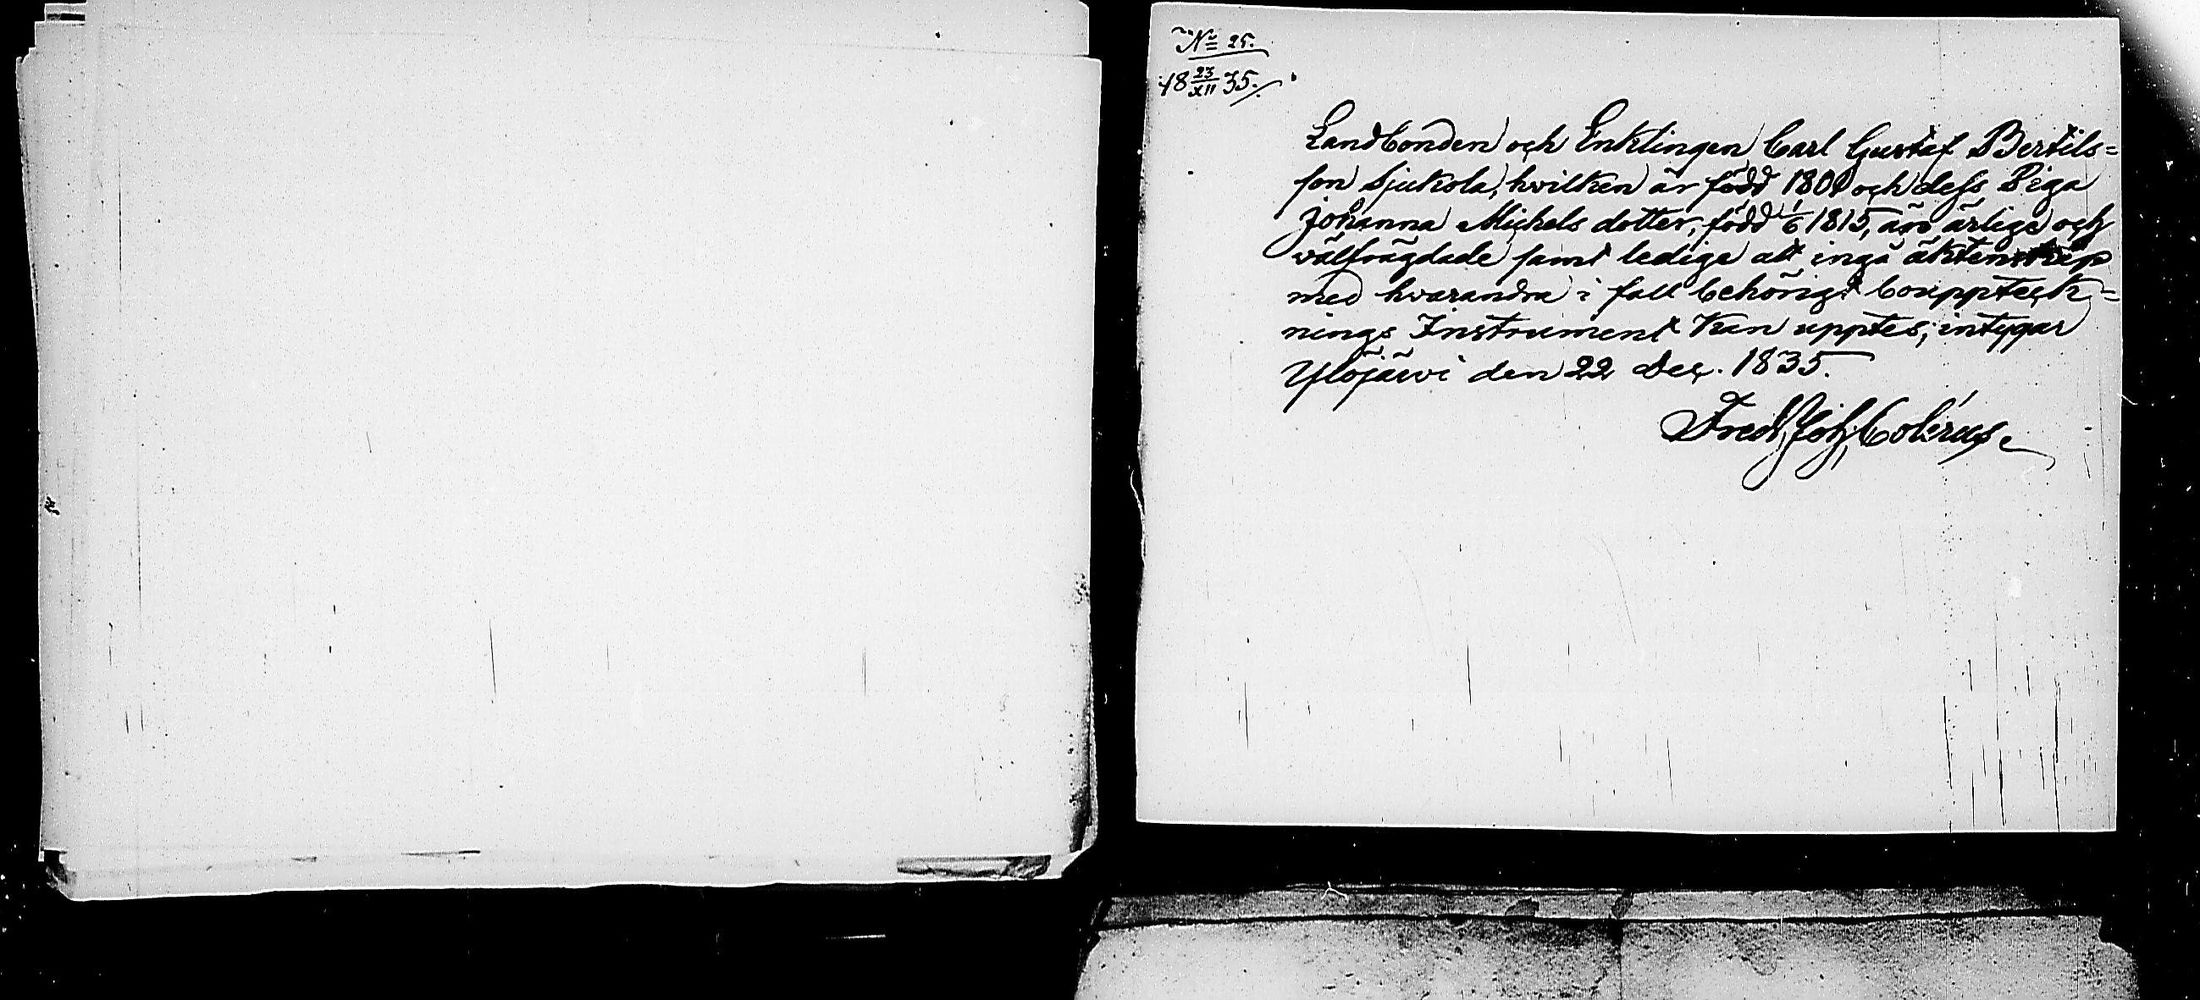 No 25.
18 23/XII 35.
Landbonden och Enklingen Carl Gustaf Bertils=
son Sjukola, hvilken är född 1801 och dess Piga
Johanna Michels dotter, född 1/6 1815, äro ärlige och
välfrägdade samt ledige att ingå äktenskap
med hvarandra i fall behörigt bouppteck=
nings Instrument kan upptes, intygar
Ylöjärvi den 22 Dec. 1835.
Fred. Joh. Colérus.